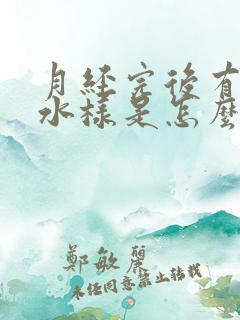 月经完後有
水樣是怎麼
鄭敏麗
未经同意禁止转载